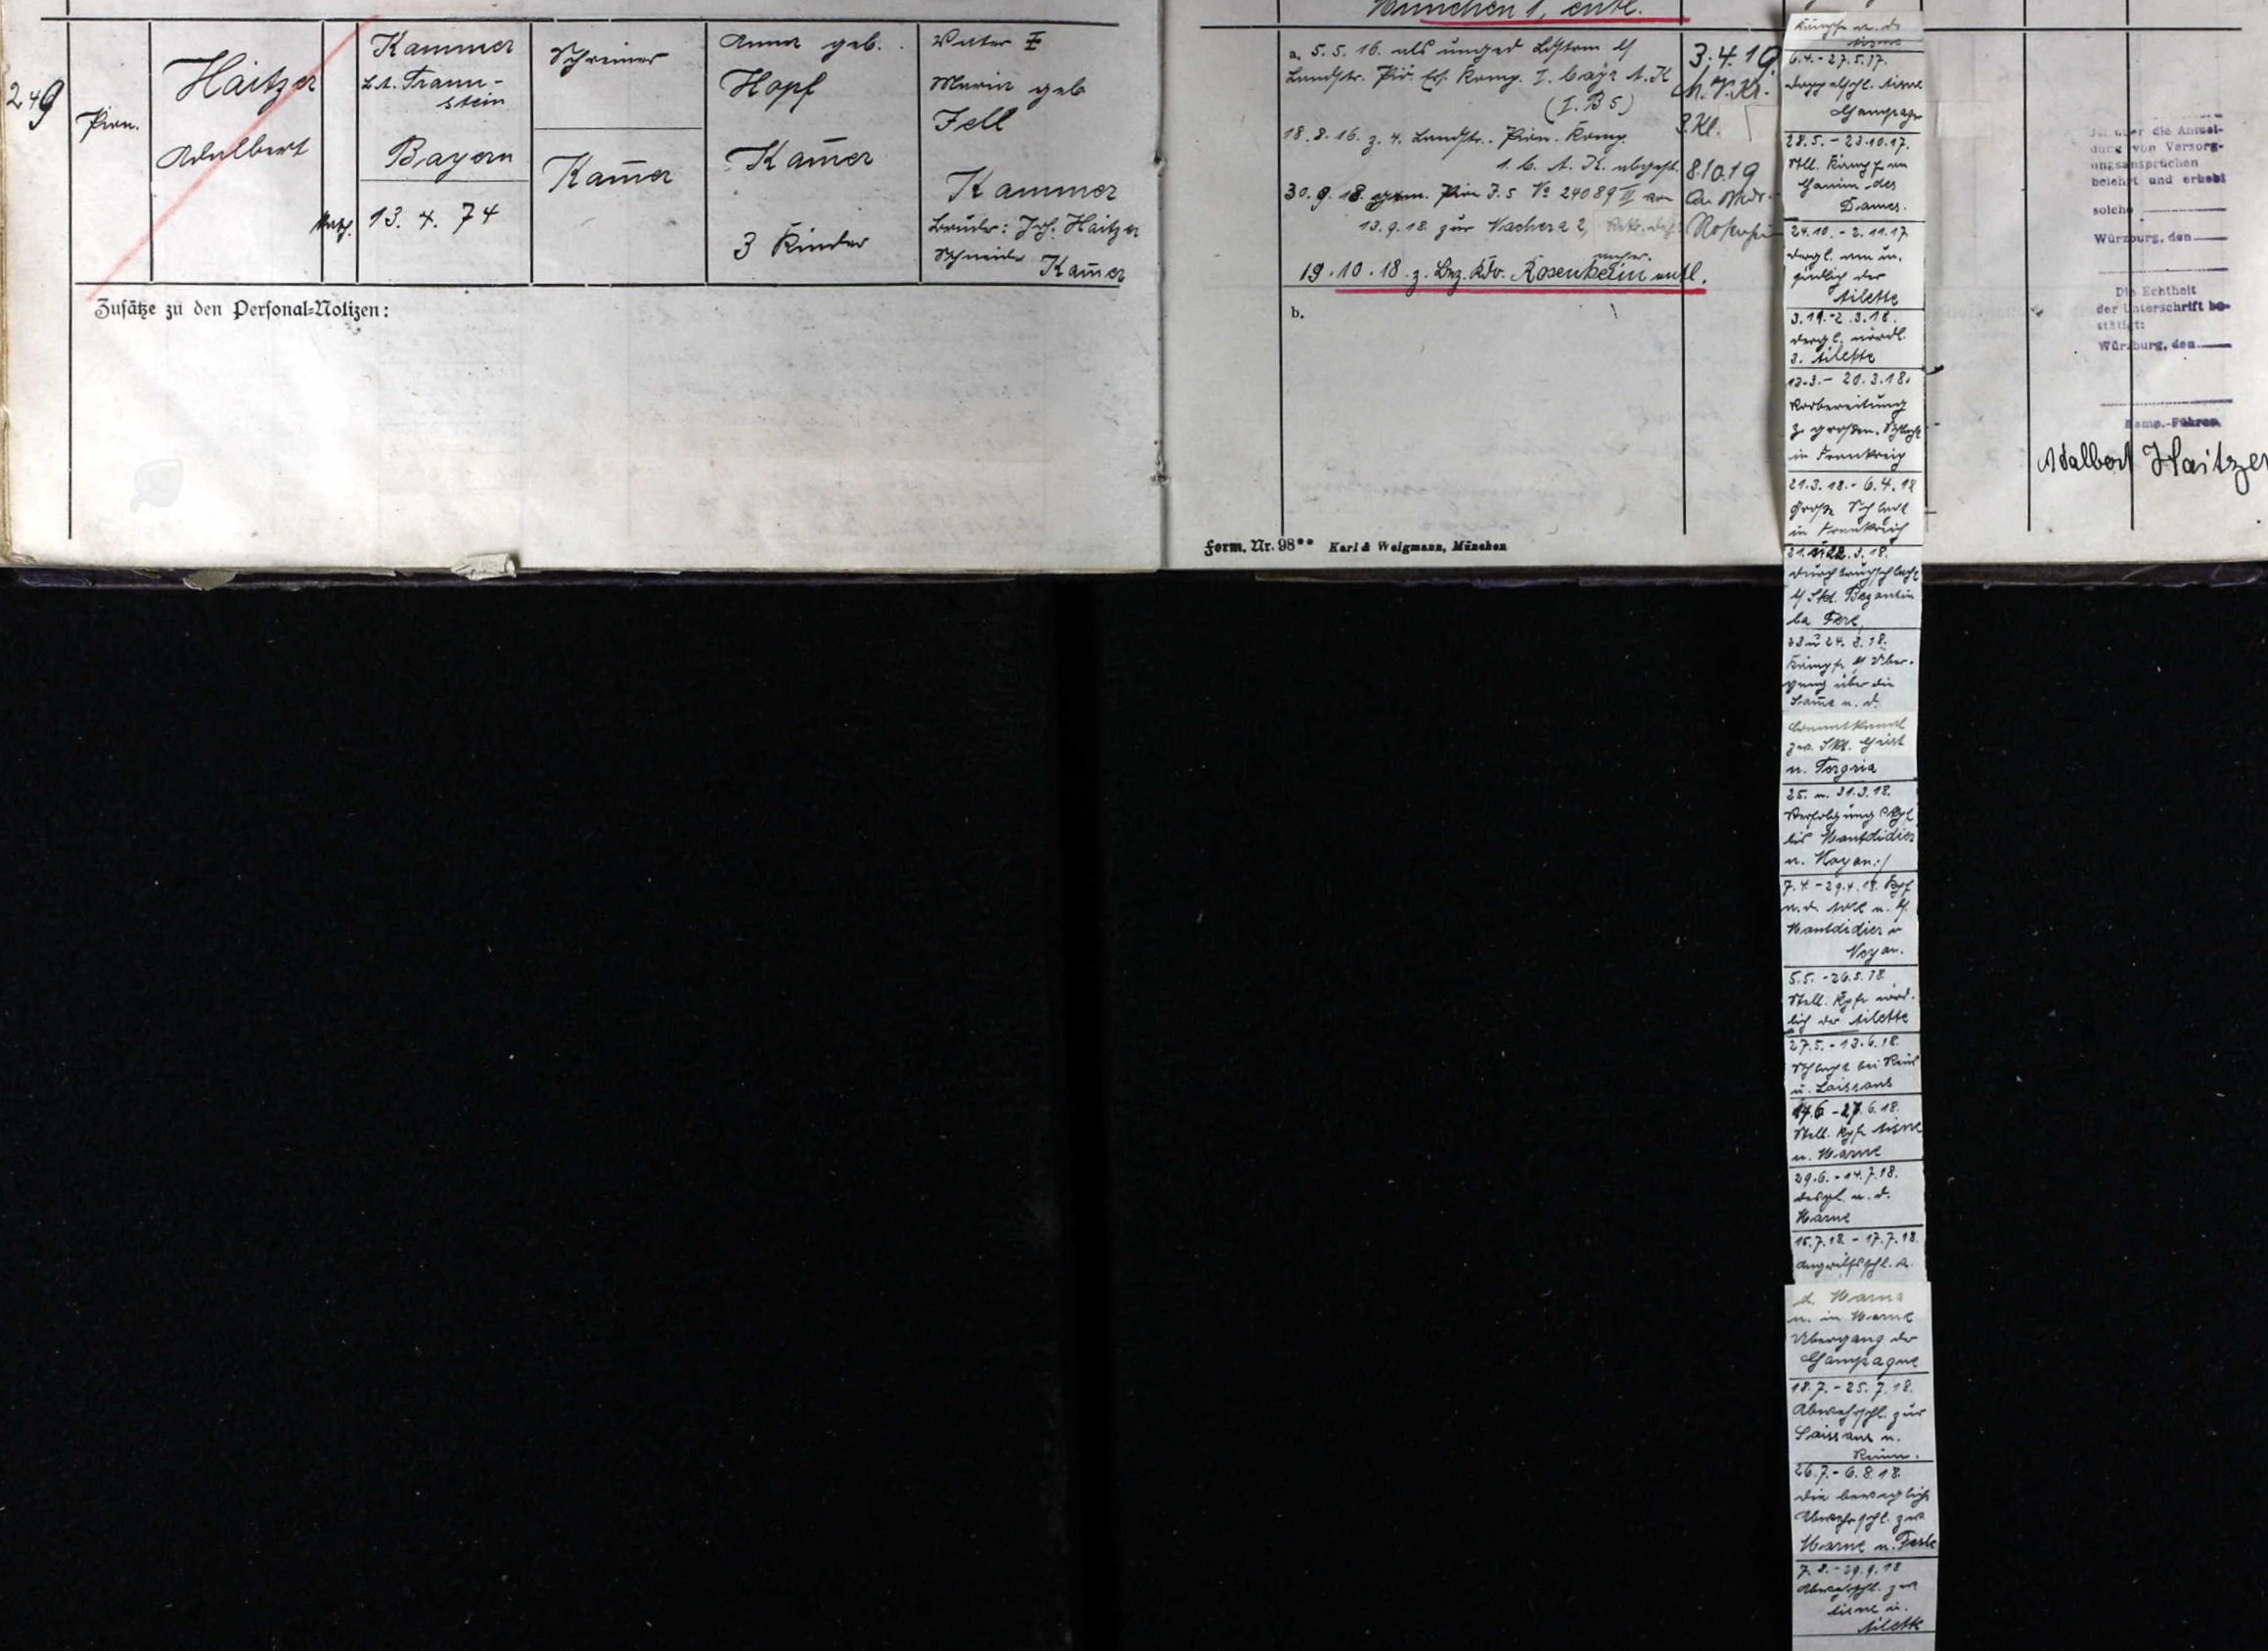 München 1, entl.
249
Pion.
Haitzer
Adalbert
Kammer
b.A. Traun-
stein
Bayern
kath. 13. 4. 74
Schreiner
Kam̄er
Anna geb.
Hopf
Kam̄er
3 Kinder
Vater
Maria geb
Fell
Kammer
Bruder: Jos. Haitzer
Schneider
Kam̄er
a. 5. 5. 16. als unged Ldstom
Landstr. Pio. Ers. Komp. I. bayr A. K
(I. B 5)
18. 8. 16. z. 4. Landstr. Pion. Komp.
1. b. A. K. abgest.
30. 9. 18. Pion
13. 9. 18. zur
19. 10. 18. z. Bez. Kdo. Rosenheim entl.
b.
3. 4. 19
M. V. Kr.
3. Kl.
8.10.19
Rosenheim
Kämpfe a. d.
Aisne
6.4.-27.5.17.
Doppelschl. Aisne
Champagne
28.5.-23.10.17.
Stell. Kämpfe am
Chemin des
Dames.
24.10.-2.11.17
dergl. am u.
südlich der
Ailette
3.11.-2.3.18.
dergl. nördl.
d. Ailette
- 20.3.18.
Vorbereitung
z. großen Schlacht
in Frankreich
21.3.18.-6.4.18
Große Schlacht
in Frankreich
21. u. 22.3.18.
Durchbruchschlacht
La Fere
23 u 24.3.18.
Kämpfe Über-
gang über die
Som̄e u. d.
Crozatkanal
zw. Skt. Christ
u. Tergnier
25. u. 31.3.18.
Verfolgung Kpf
bis Montdidier
u. Noyon
7.4.-29.4.18. Kpf
a. d. Avre u. b.
Montdidier u
Noyon.
5.5.-26.5.18
Stell. Kpfe nörd-
lich der Ailette
27.5.-13.6.18.
Schlacht bei Reims
u. Soissons
14.6-27.6.18.
Stell. Kpfe Aisne
u. Marne
29.6.-14.7.18.
desgl. a. d.
Marne
15.7.18.-17.7.18.
Angriffsschl. a.
d. Marne
u. in Marne
Übergang der
Champagne
18.7.-25.7.18.
Abwehrschl. zw
Soissons u.
Reims.
26.7.-6.8.18.
die bewegliche
Abwehrschl. zw
Marne u. Vesle
7.8.-29.9.18
Abwehrschl. zw
Aisne u.
Ailette
Ist über die Anmel-
dung von Versorg-
ungsansprüchen
belehrt und erhebt
solche
Würzburg, den
Die Echtheit
der Unterschrift be-
stätigt:
Würzburg, den
Komp.-Führer
Adalbert Haitzer
Zusätze zu den Personal-Notizen:
Form. Nr. 98** Karl & Weigmann, München